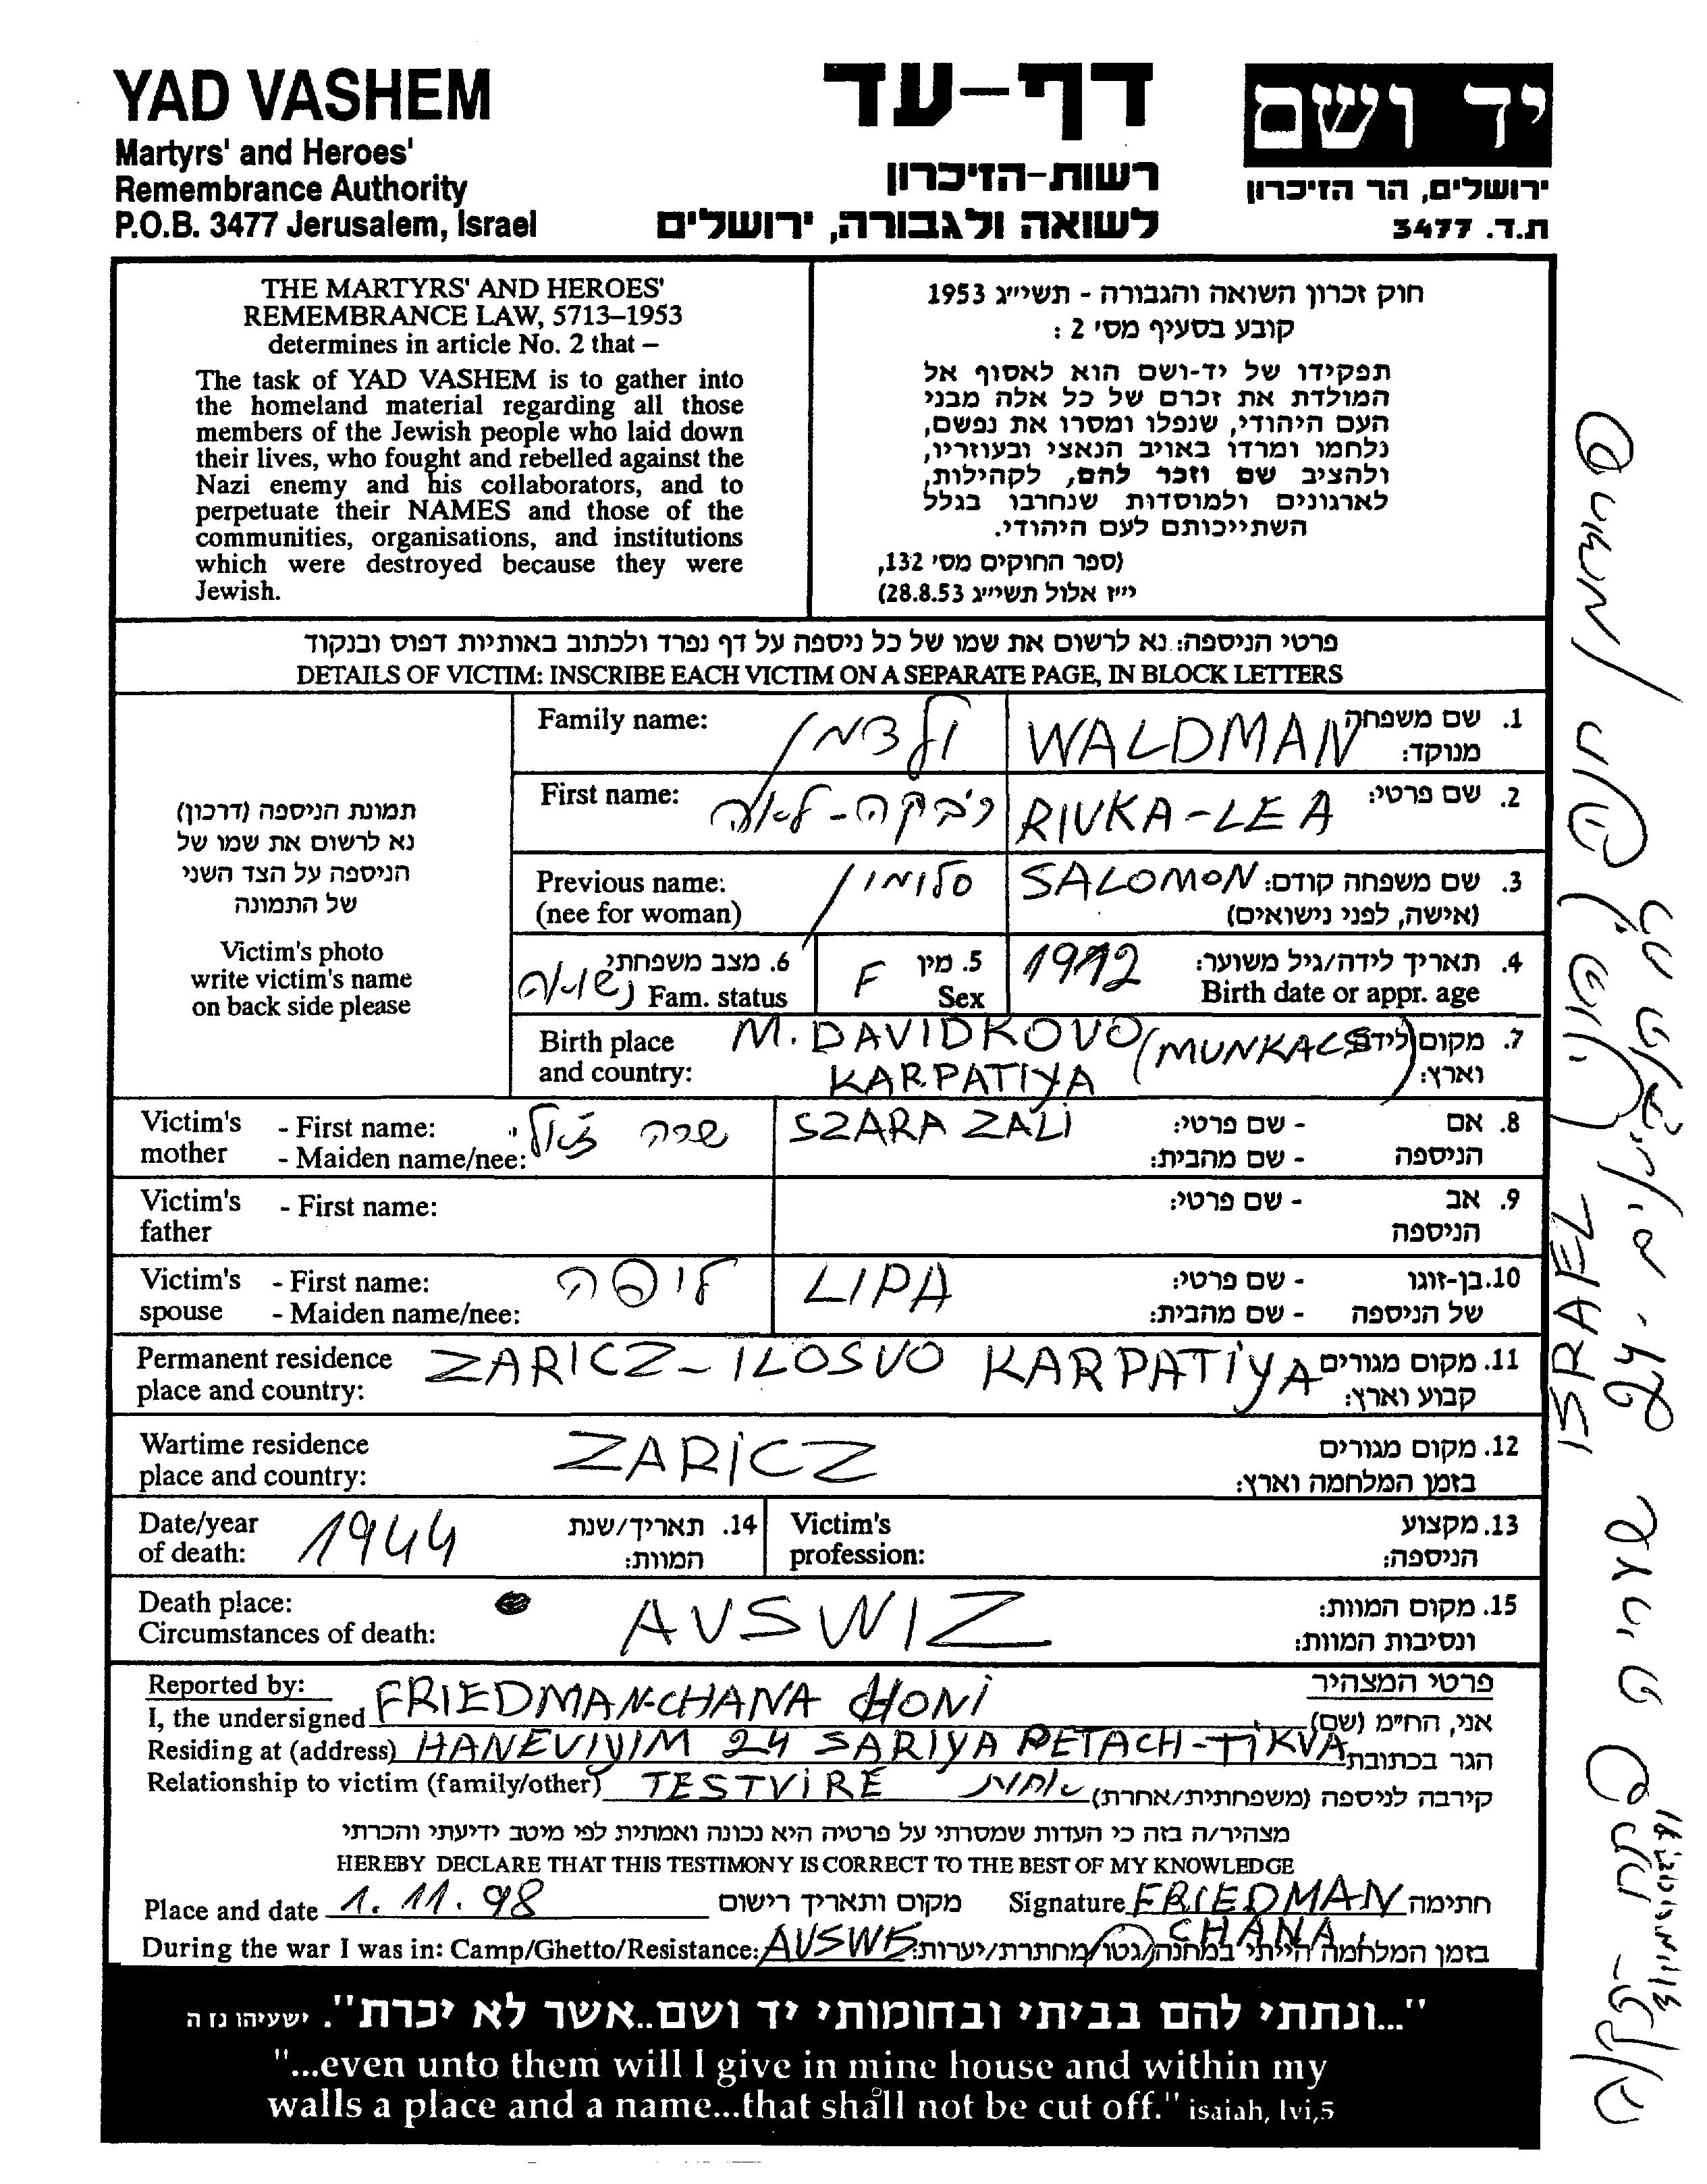 YAD VASHEM
Martyrs' and Heroes'
Remembrance Authority
P.O.B. 3477 Jerusalem, Israel
דף-עד
רשות-הזיכרון
לשואה ולגבורה, ירושלים
יד ושם
ירושלים, הר הזיכרון
ת.ד. 3477
THE MARTYRS' AND HEROES'
REMEMBRANCE LAW, 5713–1953
determines in article No. 2 that –
The task of YAD VASHEM is to gather into
the homeland material regarding all those
members of the Jewish people who laid down
their lives, who fought and rebelled against the
Nazi enemy and his collaborators, and to
perpetuate their NAMES and those of the
communities, organisations, and institutions
which were destroyed because they were
Jewish.
חוק זכרון השואה והגבורה - תשי״ג 1953
קובע בסעיף מס׳ 2 :
תפקידו של יד-ושם הוא לאסוף אל
המולדת את זכרם של כל אלה מבני
העם היהודי, שנפלו ומסרו את נפשם,
נלחמו ומרדו באויב הנאצי ובעוזריו,
ולהציב שם וזכר להם, לקהילות,
לארגונים ולמוסדות שנחרבו בגלל
השתייכותם לעם היהודי.
(ספר החוקים מס׳ 132,
י״ז אלול תשי״ג 28.8.53)
פרטי הניספה: נא לרשום את שמו של כל ניספה על דף נפרד ולכתוב באותיות דפוס ובנקוד
DETAILS OF VICTIM: INSCRIBE EACH VICTIM ON A SEPARATE PAGE, IN BLOCK LETTERS
תמונת הניספה (דרכון)
נא לרשום את שמו של
הניספה על הצד השני
של התמונה
Victim's photo
write victim's name
on back side please
Family name: ולדמן WALDMAN 1. שם משפחה
מנוקד:
First name: רבקה-לאה RIVKA-LEA 2. שם פרטי:
Previous name: סלומון SALOMON 3. שם משפחה קודם:
(nee for woman) (אישה, לפני נישואים)
6. מצב משפחתי 5. מין 1912 4. תאריך לידה/גיל משוער:
נשואה Fam. status F Sex Birth date or appr. age
Birth place M. DAVIDKOVO (MUNKACS) 7. מקום לידה
and country: KARPATIYA וארץ:
Victim's - First name: שרה זאלי SZARA ZALI - שם פרטי: 8. אם
mother - Maiden name/nee: - שם מהבית: הניספה
Victim's - First name: - שם פרטי: 9. אב
father הניספה
Victim's - First name: ליפה LIPA - שם פרטי: 10. בן-זוגו
spouse - Maiden name/nee: - שם מהבית: של הניספה
Permanent residence ZARICZ-ILOSVO KARPATIYA 11. מקום מגורים
place and country: קבוע וארץ:
Wartime residence ZARICZ 12. מקום מגורים
place and country: בזמן המלחמה וארץ:
Date/year 1944 14. תאריך/שנת Victim's 13. מקצוע
of death: המוות: profession: הניספה:
Death place: AUSWIZ 15. מקום המוות:
Circumstances of death: ונסיבות המוות:
Reported by: פרטי המצהיר
I, the undersigned FRIEDMAN-CHANA HONI אני, החי״מ (שם)
Residing at (address) HANEVIYIM 24 SARIYA PETACH-TIKVA הגר בכתובת
Relationship to victim (family/other) TESTVIRE אחות קירבה לניספה (משפחתית/אחרת)
מצהיר/ה בזה כי העדות שמסרתי על פרטיה היא נכונה ואמתית לפי מיטב ידיעתי והכרתי
HEREBY DECLARE THAT THIS TESTIMONY IS CORRECT TO THE BEST OF MY KNOWLEDGE
Place and date 1.11.98 מקום ותאריך רישום Signature FRIEDMAN חתימה
CHANA
During the war I was in: Camp/Ghetto/Resistance: AUSWIS בזמן המלחמה הייתי במחנה/גטו/מחתרת/יערות:
"...ונתתי להם בביתי ובחומותי יד ושם..אשר לא יכרת". ישעיהו נז ה
"...even unto them will I give in mine house and within my
walls a place and a name...that shall not be cut off." isaiah, lvi,5
ISRAEL